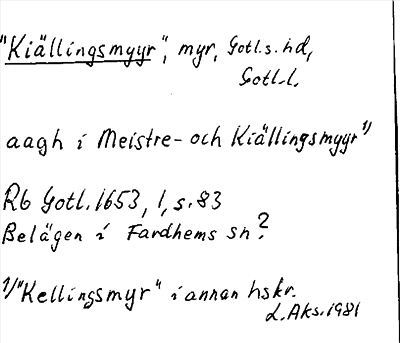 "Kiällingsmyyr", myr, Gotl.s. hd,
Gotl. l.
aagh i Meistre- och Kiällingsmyyr" 1)
Rb Gotl. 1653, 1, s. 83
Belägen i Fardhems sn?
1) "Kellingsmyr" i annan hskr.
L. Aks. 1981